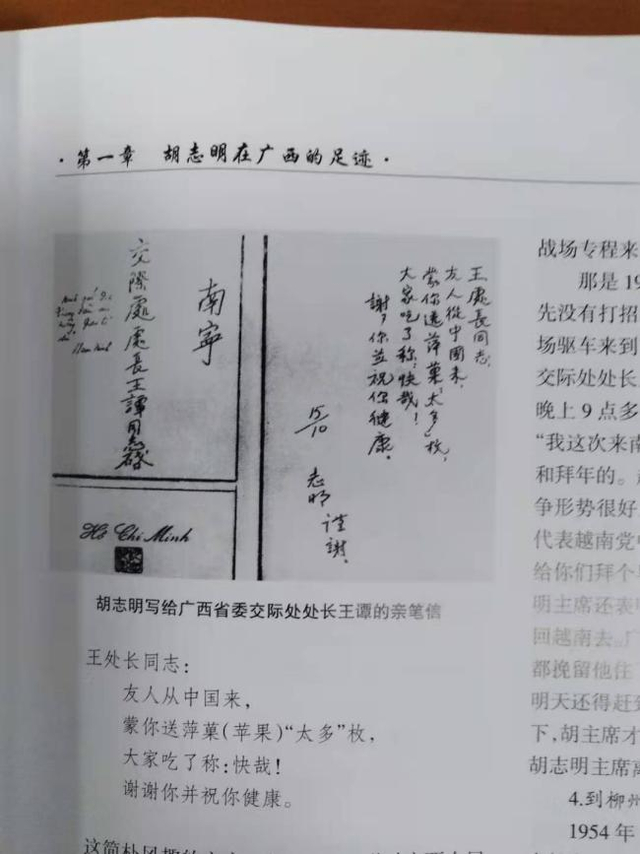 ·第一章 胡志明在广西的足迹·
王處長同志,
友人從中國来,
蒙你送萍菓“太多”枚,
大家吃了称:快哉!
謝々你並祝你健康。
15/10
志明 谨謝.
南寧
交際處處長王譚同志啓
Hồ Chí Minh
胡志明写给广西省委交际处处长王谭的亲笔信
王处长同志:
友人从中国来,
蒙你送萍菓(苹果)“太多”枚,
大家吃了称:快哉!
谢谢你并祝你健康。
这简朴风趣的
战场专程来
那是 19
先没有打招
场驱车来到
交际处处长
晚上 9 点多
“我这次来南
和拜年的。
争形势很好
代表越南党中
给你们拜个
明主席还表
回越南去。
都挽留他住
明天还得赶到
下,胡主席才
胡志明主席离
4.到柳州
1954 年